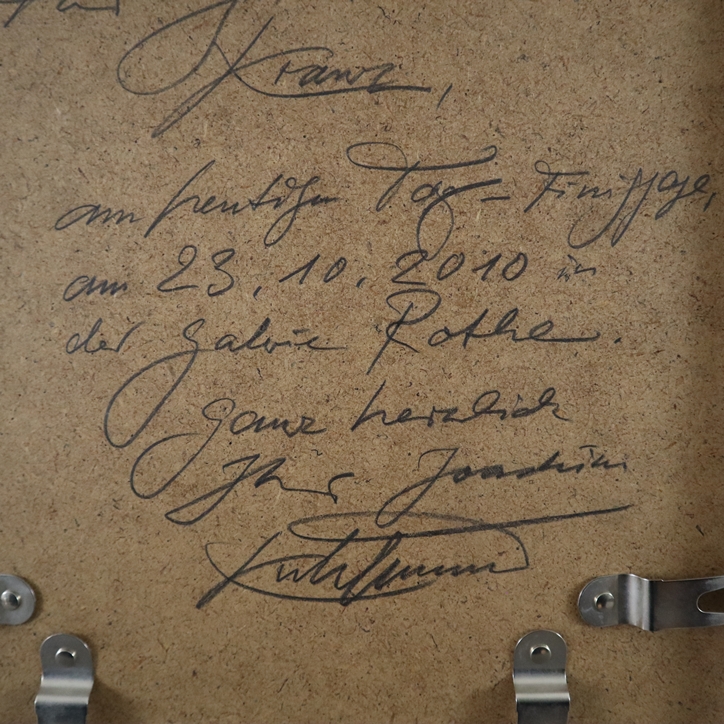 Für
Kranz,
am heutigen Tag - Finissage,
am 23.10.2010 in
der Galerie Rothe.
Ganz herzlich
Ihr Joachim
Kuhlmann